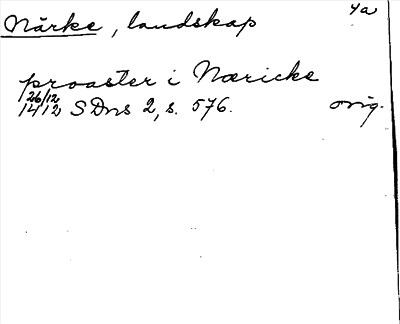 Närke, landskap 4a
proaster i Næricke
26/12
1412 SDns 2, s. 576. orig.